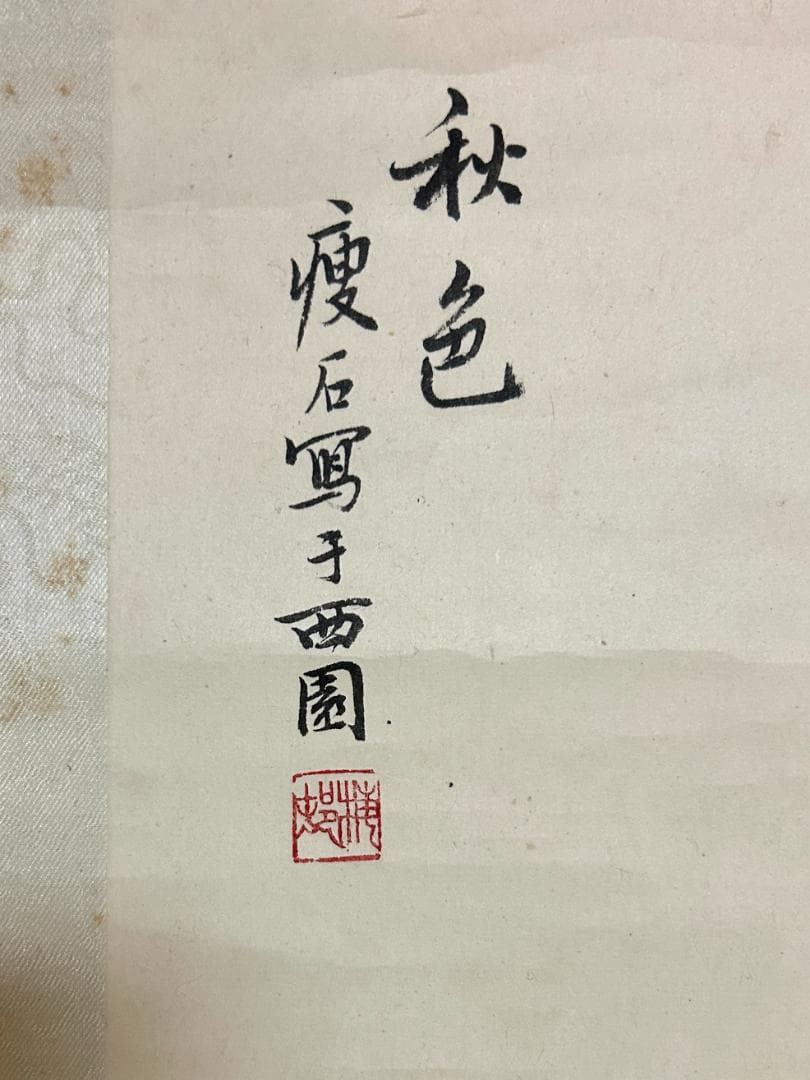 秋色
瘦石寫于西園